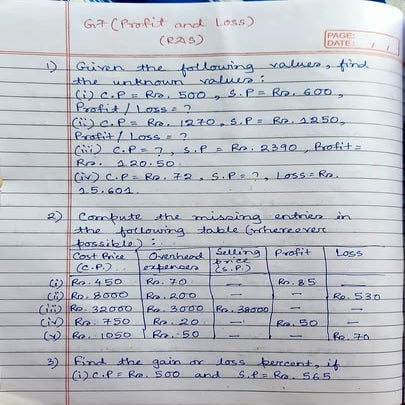 G7 (Profit and Loss)
(RDS)
PAGE:
DATE: / /
1) Given the following values, find
the unknown values:
(i) C.P = Rs. 500, S.P = Rs. 600,
Profit / Loss = ?
(ii) C.P = Rs. 1270, S.P = Rs. 1250,
Profit / Loss = ?
(iii) C.P = ?, S.P = Rs. 2390, Profit =
Rs. 120.50
(iv) C.P = Rs. 72, S.P = ?, Loss = Rs.
15.601.
2) Compute the missing entries in
the following table (whereever
possible):
Cost Price (C.P.).. Overhead expenses Selling price (S.P.) Profit Loss
(i) Rs. 450 Rs. 70 — Rs. 85 —
(ii) Rs. 8000 Rs. 200 — — Rs. 530
(iii) Rs. 32000 Rs. 3000 Rs. 38000 — —
(iv) Rs. 750 Rs. 20 — Rs. 50 —
(v) Rs. 1050 Rs. 50 — — Rs. 70
3) Find the gain or loss percent, if
(i) C.P = Rs. 500 and S.P = Rs. 565